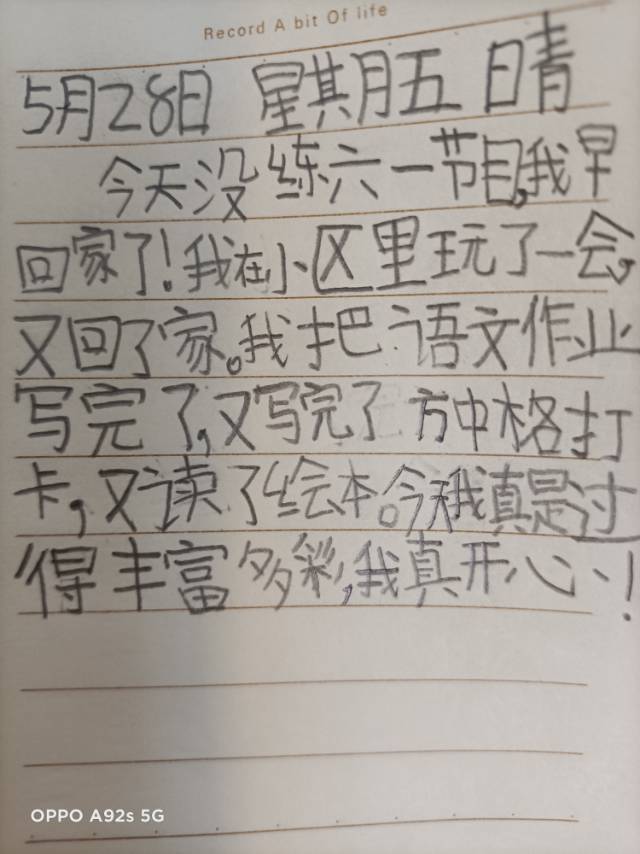 Record A bit Of life
5月28日 星期五 晴
今天没练六一节目,我早
回家了!我在小区里玩了一会,
又回了家。我把语文作业
写完了,又写完了方中格打
卡,又读了绘本。今天我真是过
得丰富多彩,我真开心!
OPPO A92s 5G